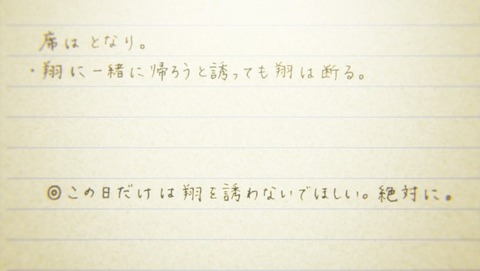 席はとなり。
・翔に一緒に帰ろうと誘っても翔は断る。
◎この日だけは翔を誘わないでほしい。絶対に。